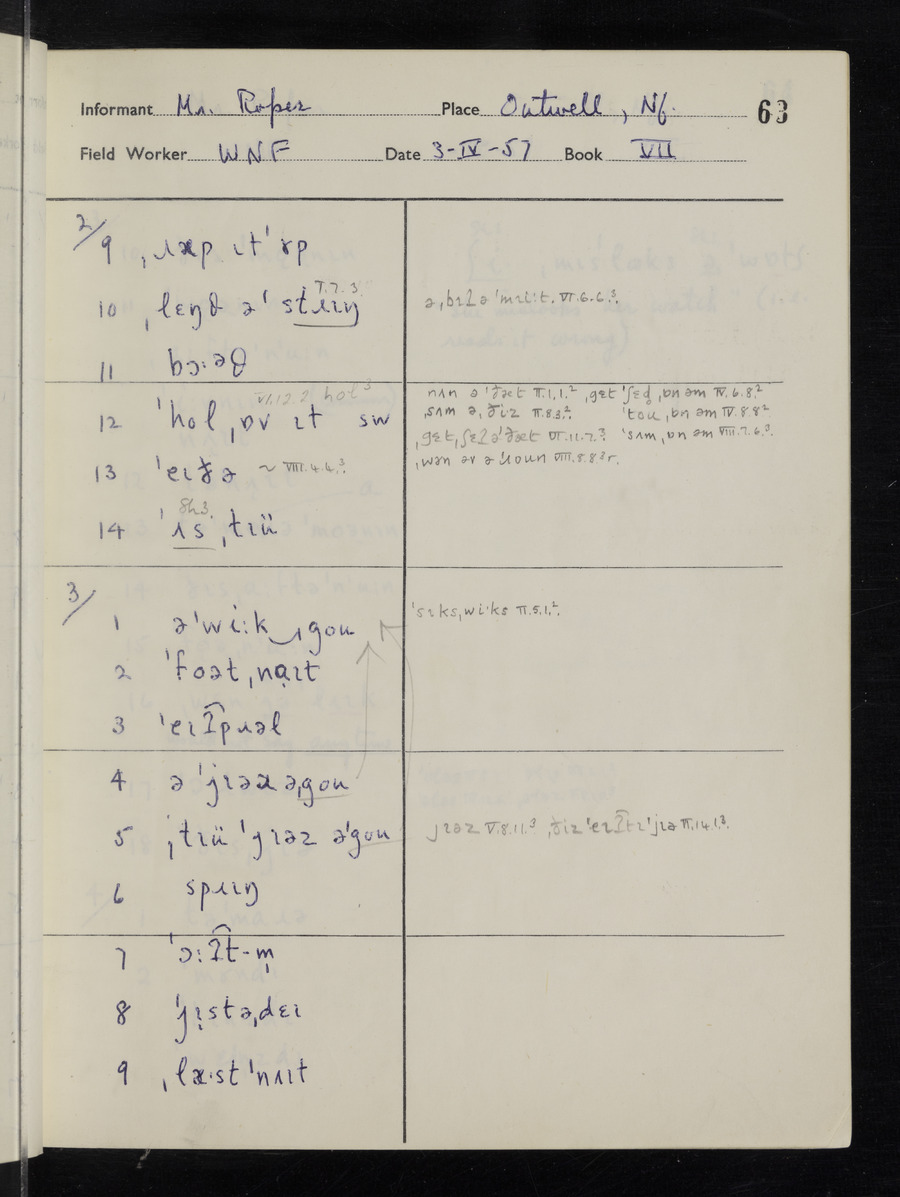 Informant Mr. Roper Place Outwell, Nf. 63
Field Worker WNF Date 3-IV-57 Book VII
2/
9 ˌɹæp ɪt ˈʏp
V.7.3.
10 ˌlɛŋθ əˈ stɹɪŋ
ə ˌbɪʔ əˈ
VI.6.6.³
11 bɔːəθ
VI.12.2 hol³
12 ˈhol ˌɒv ɪt sw
nʌn əˈðæt II.1.1.² ˌgɛt ˈʃɛd ˌɒn əm IV.6.8.²
ˌsʌm ə ˌðɪz II.8.3.² ˈtoʊ ˌɒn əm IV.8.8²
ˌgɛt ˌʃɛʔ əˈðæt VI.11.7.³ ˈsʌm ˌɒn əm VIII.7.6.³
ˌwən əv ə VIII.8.8³r.
13 ˈeɪðə ~ VIII.4.4.³
8h3.
14 ˈɪs ˌtɪü
3/
1 əˈwiːk ˌgoʊ
ˈsɪks ˌwiːks II.5.1.²
2 ˈfoət ˌnaɪt
3 ˈeɪʔpɹəl
4 əˈjɪəɹ əˌgoʊ
5 ˌtɪü ˈjɪəz əˈgoʊ
jɪəz V.8.11.³ ˌðɪz ˈeɪʔtɪˈjɪə II.14.1.³
6 spɹɪŋ
7 ˈɔːʔt-m̩
8 ˈjɪstəˌdɛɪ
9 ˌlæ·st ˈnʌɪt